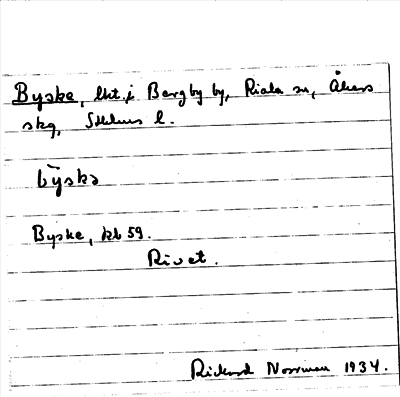 Byske, lht. i Bergby by, Riala sn, Åkers
skg, Sthlms l.
bȳskə
Byske, kb 59.
Rivet.
Rickard Norrman 1934.